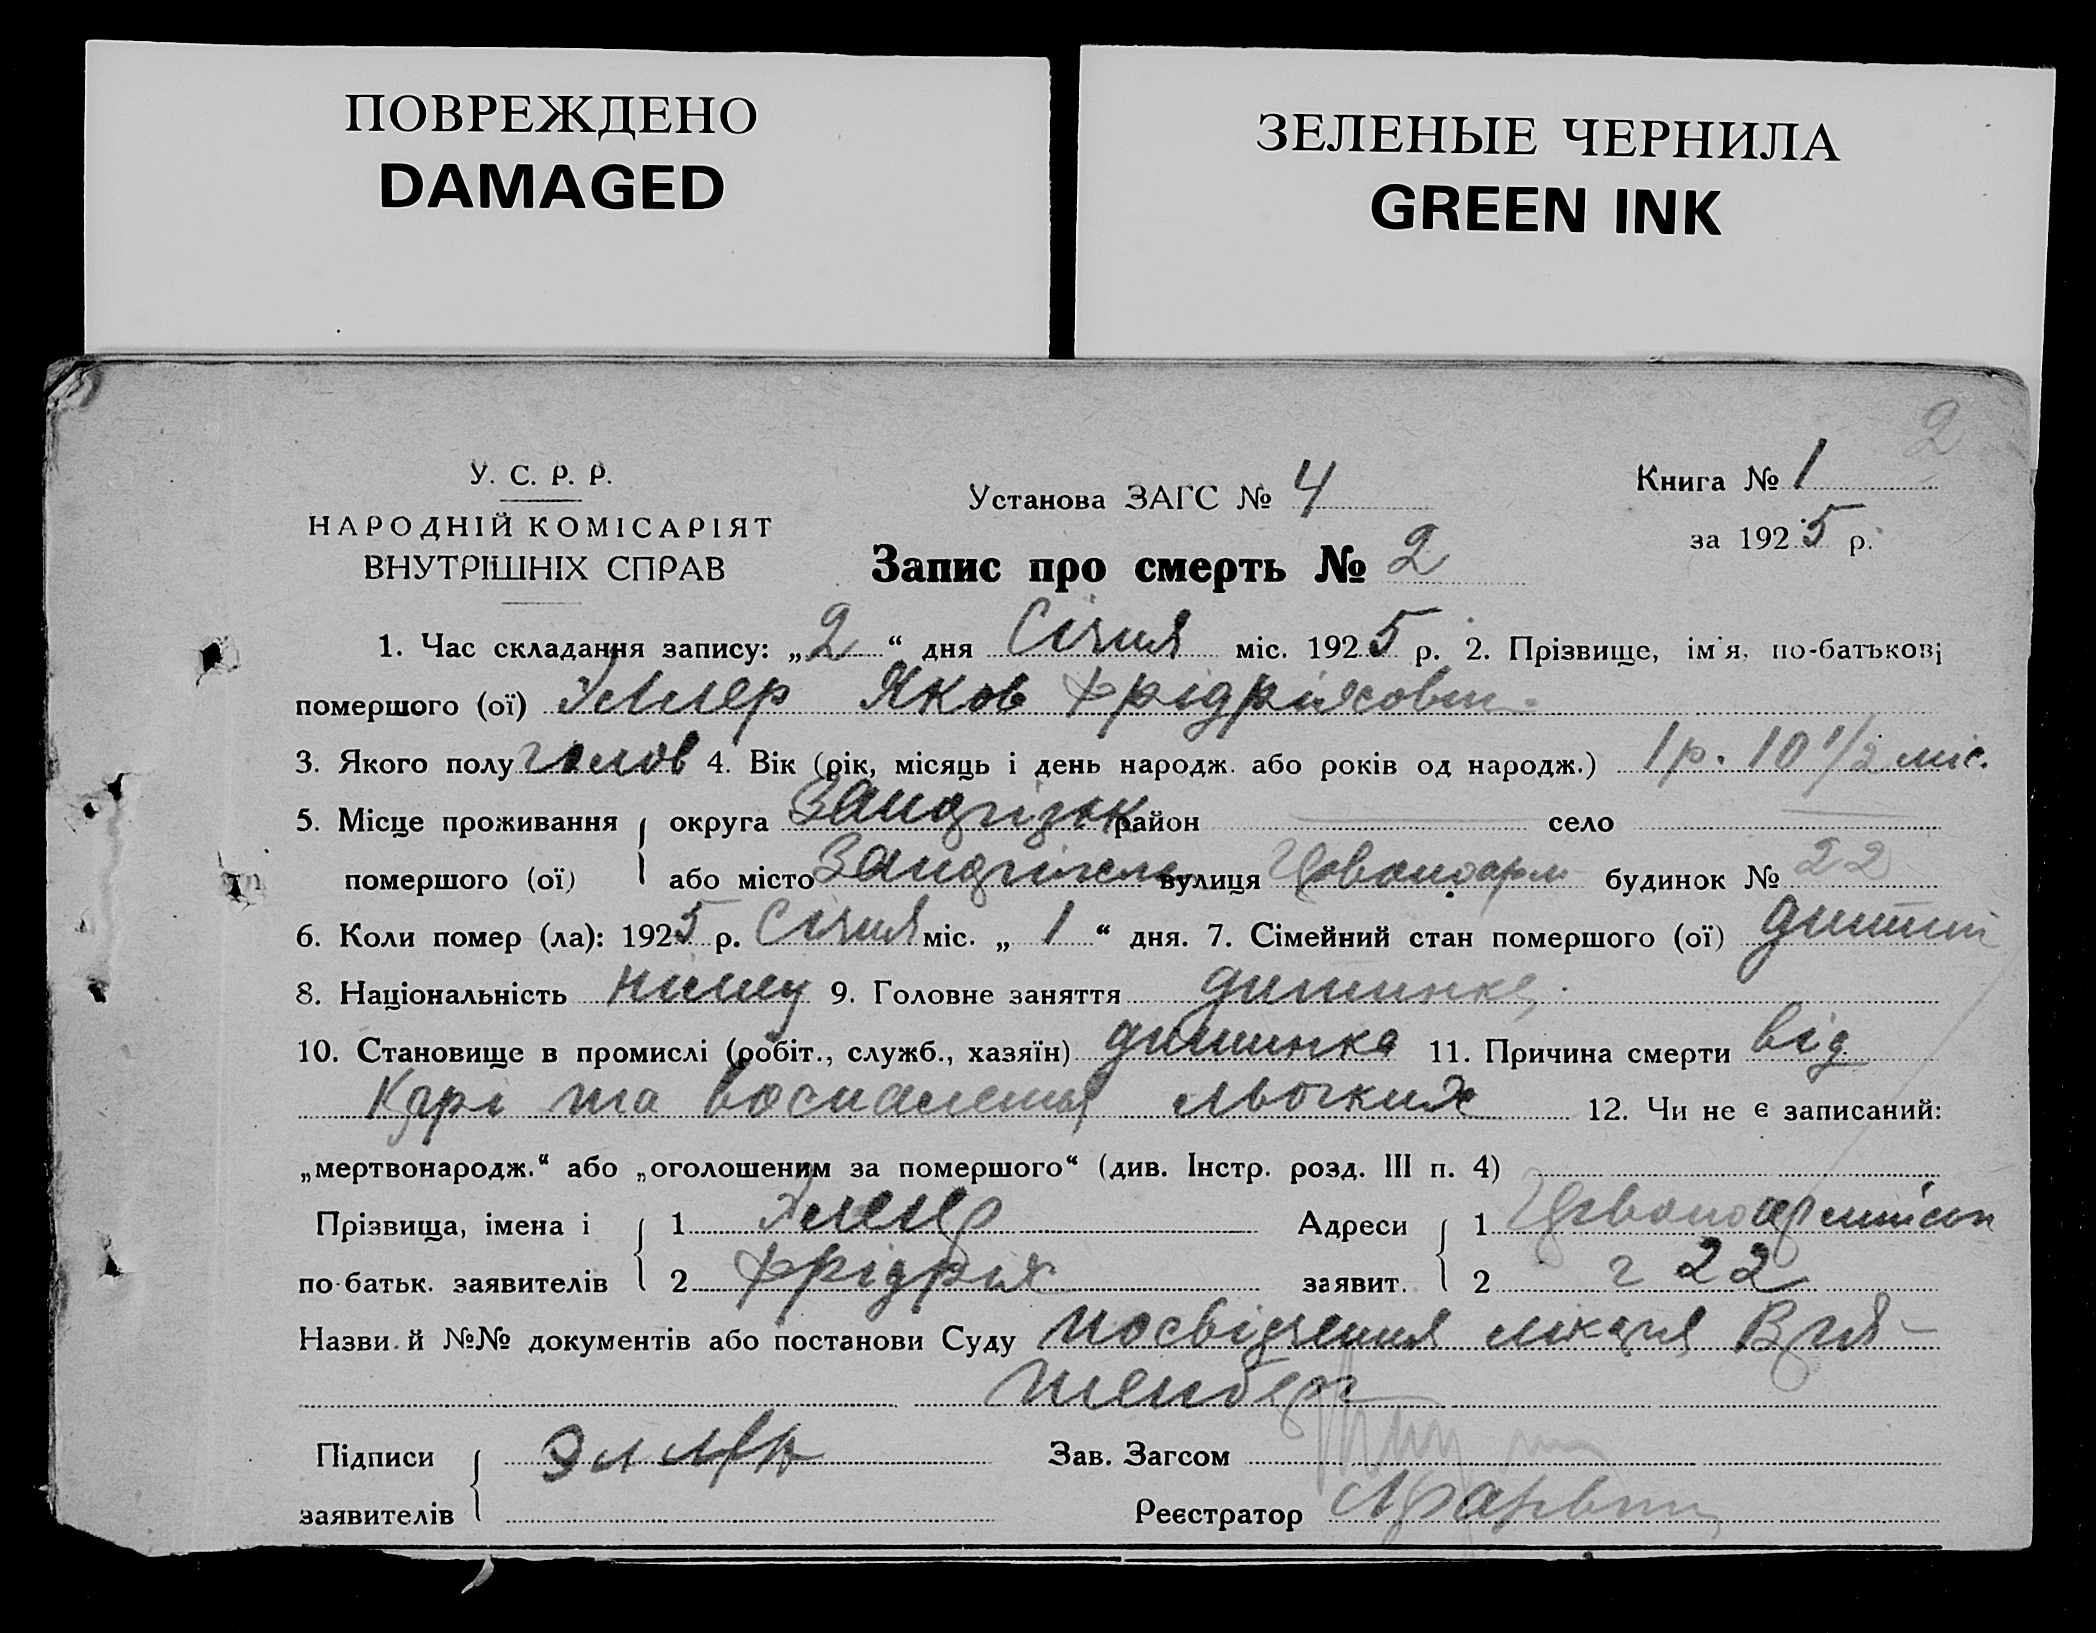 ПОВРЕЖДЕНО
DAMAGED
ЗЕЛЕНЫЕ ЧЕРНИЛА
GREEN INK
2
У. С. Р. Р.
НАРОДНІЙ КОМІСАРІЯТ
ВНУТРІШНІХ СПРАВ
Установа ЗАГС № 4
Книга № 1
за 1925 р.
Запис про смерть № 2
1. Час складання запису: „2“ дня Січня міс. 1925 р. 2. Прізвище, ім'я, по-батькові
помершого (ої) Яков Фрідріхович
3. Якого полу чолов 4. Вік (рік, місяць і день народж. або років од народж.) 1 р. 10 1/2 міс.
5. Місце проживання округа район село
помершого (ої) або місто вулиця будинок № 22
6. Коли помер (ла): 1925 р. Січня міс. „ 1 “ дня. 7. Сімейний стан помершого (ої)
8. Національність 9. Головне заняття дитинка
10. Становище в промислі (робіт., служб., хазяїн) дитинка 11. Причина смерти від
Карі та воспаления льогких 12. Чи не є записаний:
„мертвонародж.“ або „оголошеним за помершого“ (див. Інстр. розд. III п. 4)
Прізвища, імена і 1 Адреси 1
по-батьк. заявителів 2 Фрідріх заявит. 2 22
Назви й №№ документів або постанови Суду посвідчення лікаря
Підписи Зав. Загсом
заявителів Реєстратор